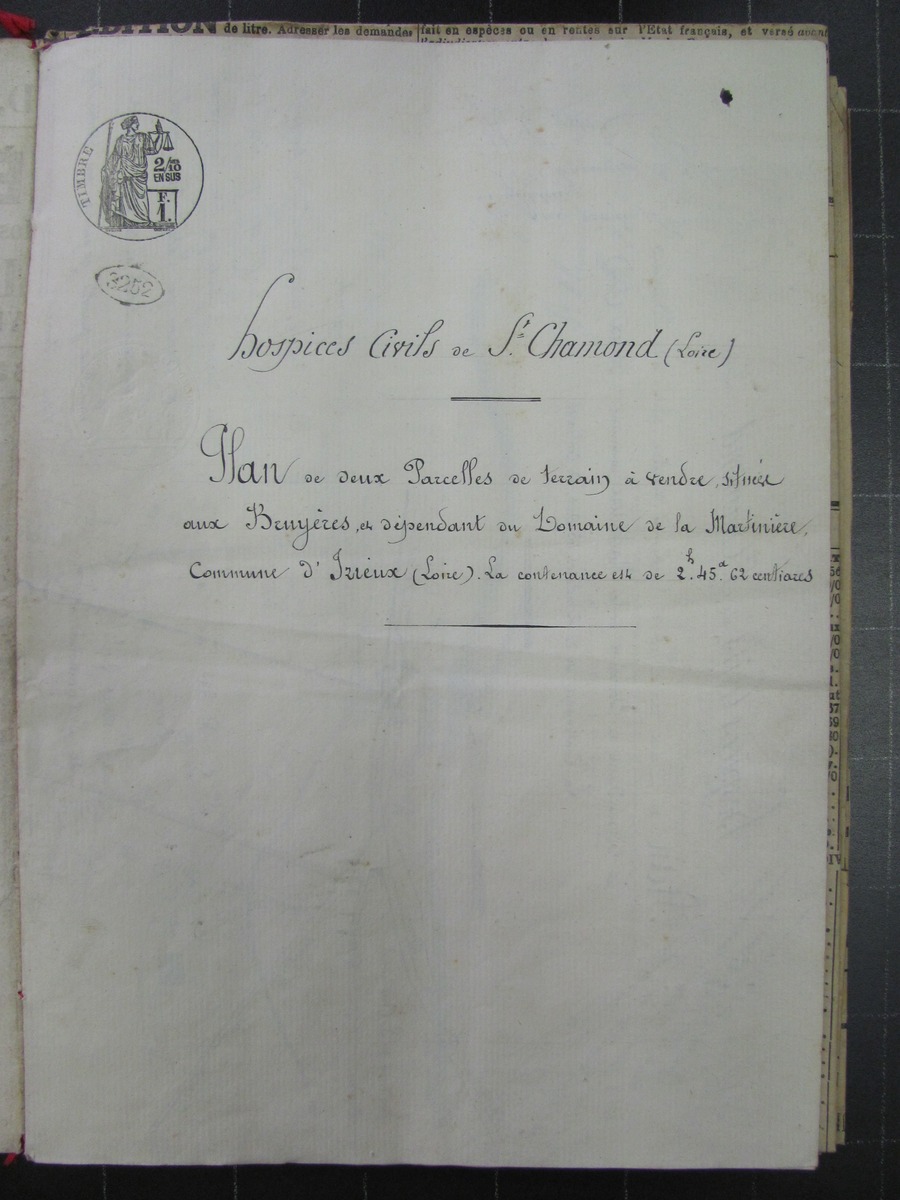 DITION
de litre. Adresser les demandes
fait en espèces ou en rentes sur l'Etat français, et versé avant
TIMBRE
2/10
EN SUS
F.
1.
3252
hospices Civils de St. Chamond (Loire)
Plan de deux Parcelles de terrain à vendre, situées
aux Bruyères, et dépendant du Domaine de la Martinière,
Commune d'Izieux (Loire). La contenance est de 2h. 45a. 62 centiares